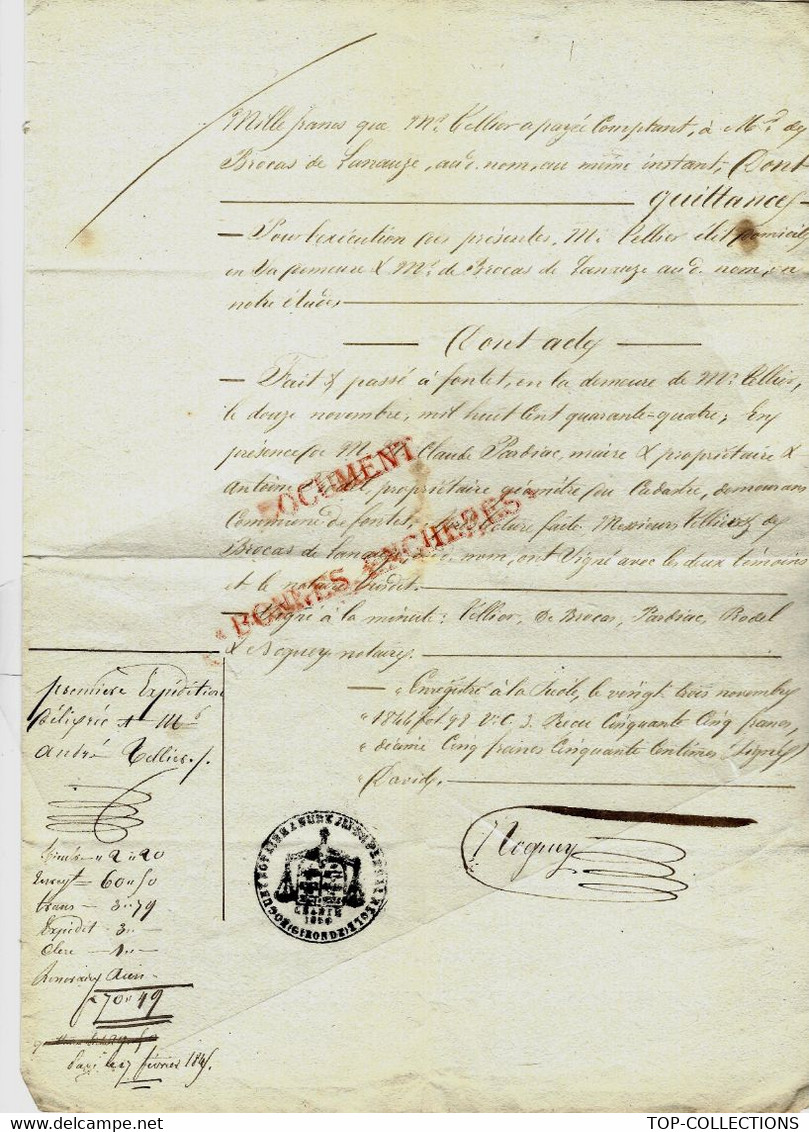 Mille francs que Mr. Tellier a payée Comptant, à Mr. de
Brocas de Lanauze, aud. nom, au même instant, Dont
quittance
Pour l'exécution des présentes, M. Tellier élit domicile
en sa demeure & Mr. de Brocas de Lanauze aud. nom, en
notre étude
Dont acte
Fait & passé à fontet, en la demeure de Mr. Tellier,
le douze novembre, mil huit cent quarante-quatre; En
présence de M. Claude Pardiac, maire & propriétaire &
Antoine propriétaire géomètre du Cadastre, demeurans
Commune de fontet, lecture faite Messieurs Tellier & de
Brocas de Lanauze, nom, ont signé avec les deux témoins
et le notaire susdit.
Signé à la minute: Tellier, De Brocas, Pardiac, Rodel
& Noguey notaire.
Enregistré à la Réole, le vingt trois novembre
1844 fol 98 Vo. C. 3. Reçu Cinquante Cinq francs,
décime Cinq francs Cinquante Centimes Signé
David.
DOCUMENT
BONNES ENCHERES
première Expédition
délivrée à Mr.
André Tellier
2 " 20
60 " 50
trans - 3 " 79
Expédit - 3 "
Clerc - 1 "
70 " 49
février 1845.
Noguey
(GIRONDE)
TOP-COLLECTIONS